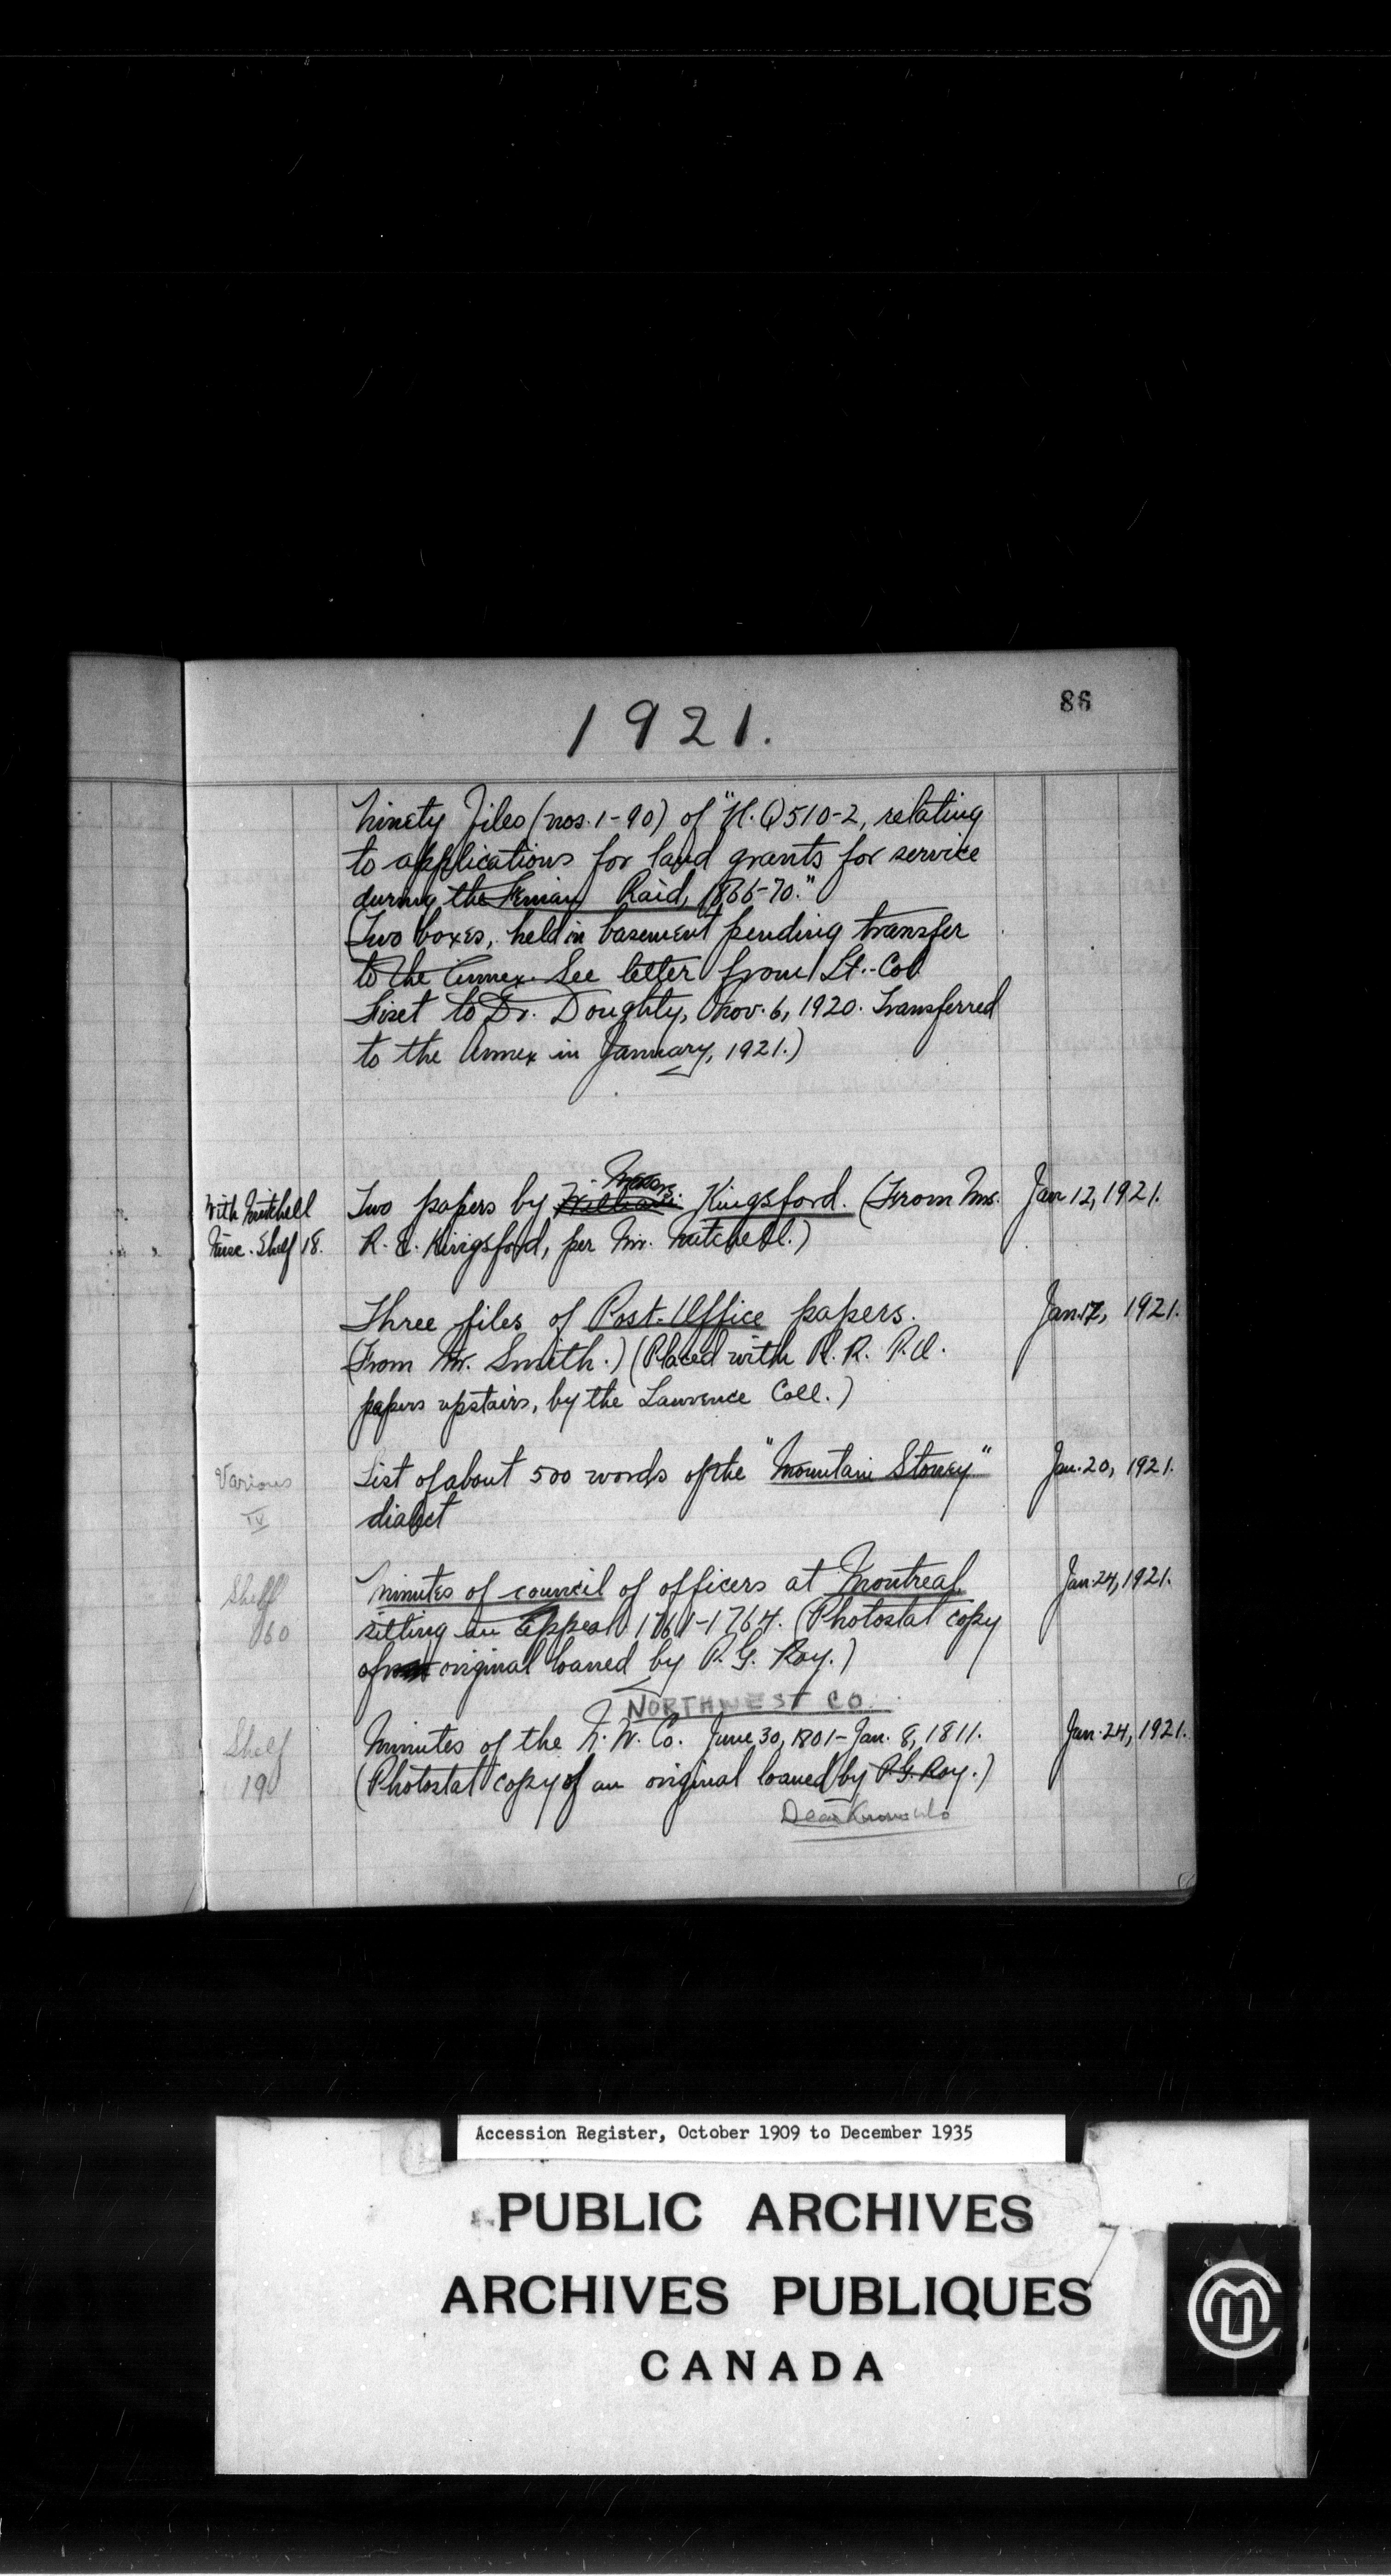 86
1921.
Ninety files (nos. 1-90) of "H.Q 510-2, relating
to applications for land grants for service
during the Fenian Raid, 1866-70."
(Two boxes, held in basement pending transfer
to the Annex. See letter from Lt.-Col.
Fiset to Dr. Doughty, Nov. 6, 1920. Transferred
to the Annex in January, 1921.)
With Mitchell
Shelf 18.
Two papers by William Kingsford. (From Mrs.
Jan 12, 1921.
R. E. Kingsford, per Mr. Mitchell.)
Three files of Post-Office papers.
Jan. 17, 1921.
(From Mr. Smith.) (Placed with P.O.
papers upstairs, by the Lawrence Coll.)
Various
IV
List of about 500 words of the "Mountain Stoney"
Jan. 20, 1921.
dialect
Shelf
60
Minutes of council of officers at Montreal
Jan. 24, 1921.
sitting in Appeal 1761-1764. (Photostat copy
of original loaned by P. G. Roy.)
NORTHWEST CO.
Shelf
190
Minutes of the N. W. Co. June 30, 1801-Jan. 8, 1811.
Jan. 24, 1921.
(Photostat copy of an original loaned by P. G. Roy.)
Accession Register, October 1909 to December 1935
PUBLIC ARCHIVES
ARCHIVES PUBLIQUES
CANADA